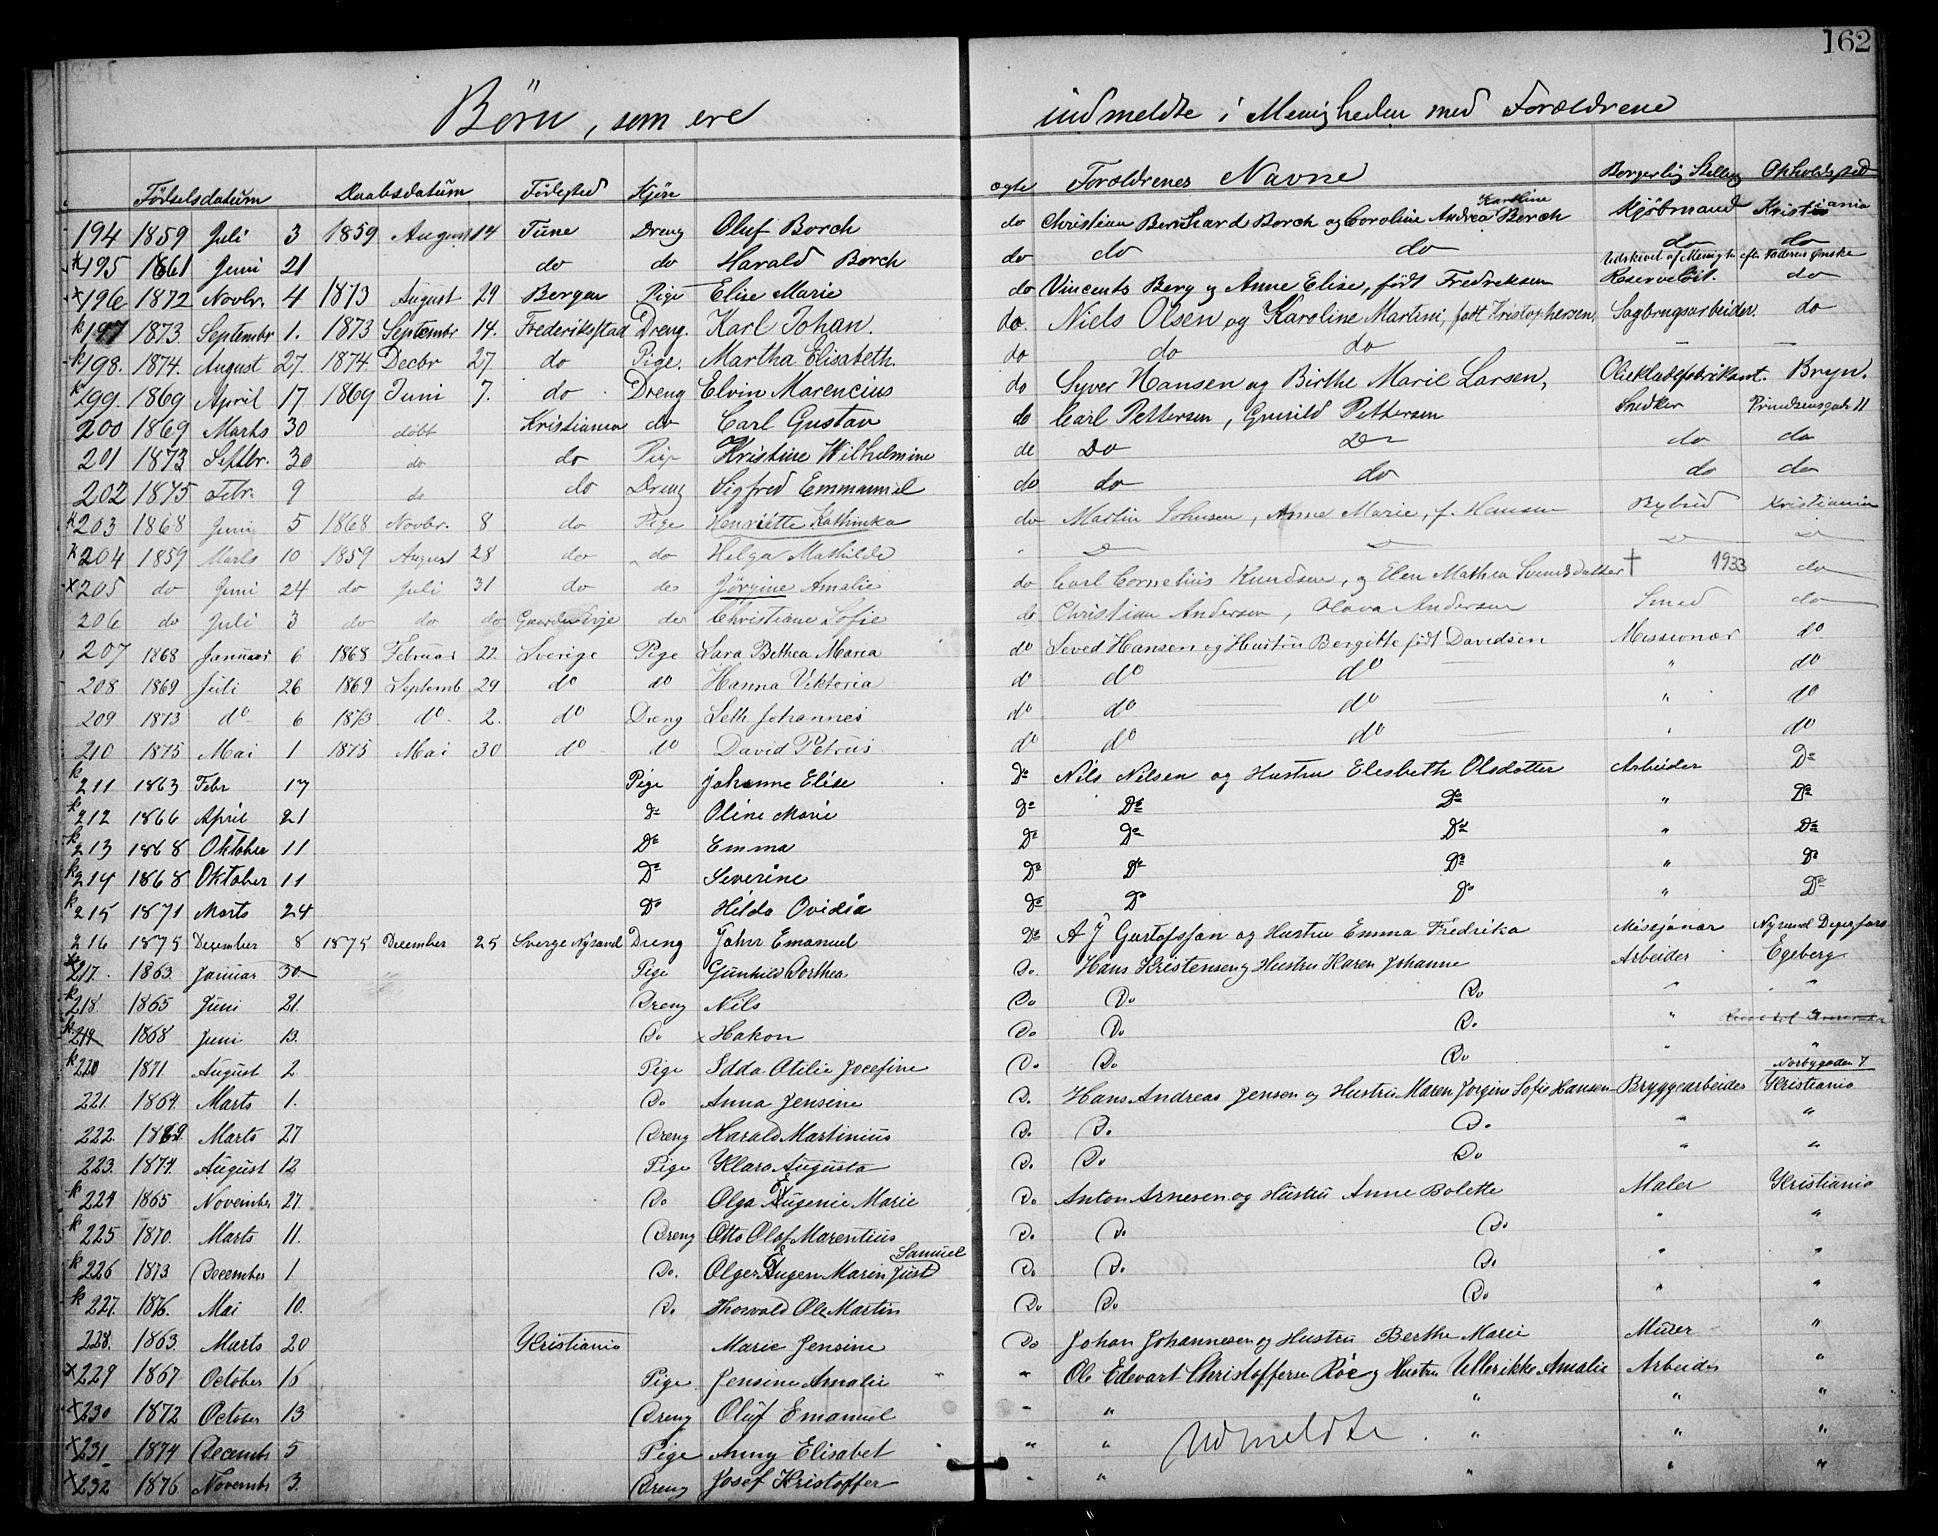 162
Börn, som ere indmeldte i Menigheden med Forældrene
Födselsdatum Daabsdatum Födested Kjön ægte Forældrenes Navne Borgerlig Stilling Opholdssted
194 1859 Juli 3 1859 August 14 Tune Dreng Oluf Borch do Christian Bernhard Borch og Caroline Andrea Karoline Borch Kjöbmand Kristiania
k 195 1861 Juni 21 do do Harald Borch do do do do do
Udskrevet af Menigh. efter Faderens Ønske
x 196 1872 Novbr. 4 1873 August 29 Bergen Pige Elise Marie do Vincents Berg og Anne Elise, født Fredriksen Reservelöit. do
k 197 1873 Septembr 1. 1873 Septembr 14. Frederikstad Dreng. Karl Johan. do Niels Olsen og Karoline Martini, født Kristophersen, Sagbrugsarbeider. do
k 198. 1874. August 27. 1874. Decbr 27. do Pige. Martha Elisabeth. do do do — —
k 199. 1869 April 17 1869 Juni 7. do Dreng Elvin Marencius do Syver Hansen og Birthe Marie Larsen, Oliekladefabrikant. Bryn.
200 1869 Marts 30 döbt Kristiania do Carl Gustav do Carl Pettersen, Gunild Pettersen Snedker Prindsensgade 11
201 1873 Septbr. 30 do do Pige Kristine Wilhelmine do Do Do do do
202 1875 Febr. 9 do do Dreng Sigfred Emmanuel do do do do do
k 203 1868 Juni 5 1868 Novbr. 8 do Pige Henriette Kathinka do Martin Johnsen, Anne Marie, f. Hansen Bybud Kristiania
k 204 1859 Marts 10 1859 August 28 do do Helga Mathilde
x 205 do Juni 24 do Juli 31 do do Jørgine Amalie do Carl Cornelius Knudsen, og Elen Mathea Svendsdatter † 1933 do
206 do Juli 3 do do do do Christiane Sofie do Christian Andersen, Olava Andersen Smed do
207 1868 Januar 6 1868 Februar 22. Sverige Pige Sara Bethea Maria do Seved Hansen og Hustru Bergitte født Davidsen Missionær do
208 1869 Juli 26 1869 Septemb 29 do do Hanna Viktoria do do do " do
209 1873 do 6 1873 do 2. do Dreng Seth Johannes do do do " do
210 1875 Mai 1 1875 Mai 30 do do David Petrus do do do " do
k 211 1863 Febr 17 Pige Johanne Elise Do Nils Nilsen og Hustru Elesbeth Olsdatter Arbeider Do
k 212 1866 April 21 Do Oline Marie Do Do Do " Do
k 213 1868 Oktober 11 Do Emma Do Do Do " Do
k 214 1868 Oktober 11 Do Severine Do Do Do " Do
k 215 1871 Marts 24 Do Hilda Ovidia Do Do Do " Do
216 1875 December 8 1875 December 25 Sverge Nysund Dreng John Emanuel Do A J Gustafsson og Hustru Emma Fredrika Missjonær Nysund Degerfors
k 217. 1863. Januar 30 Pige Gunhild Dorthea Do. Hans Kristensen og Hustru Karen Johanne Arbeider Egeberg
k 218. 1865 Juni 21. Dreng Nils Do Do Do " "
k 219 1868 Juni 13. Do x Hakon Do Do Do. "
k 220 1871 August 2. Pige Idda Otilie Josefine Do. Do. Do " "
221. 1864. Marts 1. Do Anna Jensine D. Hans Andreas Jensen og Hustru Maren Jorgine Sofie Hansen Bryggearbeider Norbygaden 7 Kristiania
222. 1869. Marts 27 Dreng Harald Martinius D. Do. Do. " "
223. 1874. August 12 Pige Klara Augusta D. Do Do " "
k 224 1865 November 27. Do Olga Eugenie Marie Do Anton Arnesen og Hustru Anne Bolette Maler Kristiania
k 225 1870. Marts 11. Dreng Otto Olaf Marentius Do. Do. Do " "
k 226 1873 December 1 Do. Olger Eugen Marin Just Samuel Do Do. Do. " "
k 227. 1876. Mai 10. Do Thorvald Ole Martin Do Do. Do " "
228. 1863. Marts 20 Kristiania Marie Jensine Do Johan Johannesen og Hustru Berthe Marie Murer "
x 229 1867 October 15 Pige Jensine Amalie " Ole Edevart Christoffersen Röe og Hustru Ullerikke Amalie Arbeider "
x 230 1872 October 13 Dreng Oluf Emanuel " " " " "
x 231 1874 Decembr 5 Pige Anny Elisabet " " Udmeldte. " " "
x 232 1876 Novembr 3. Dreng Josef Kristoffer " " " " "